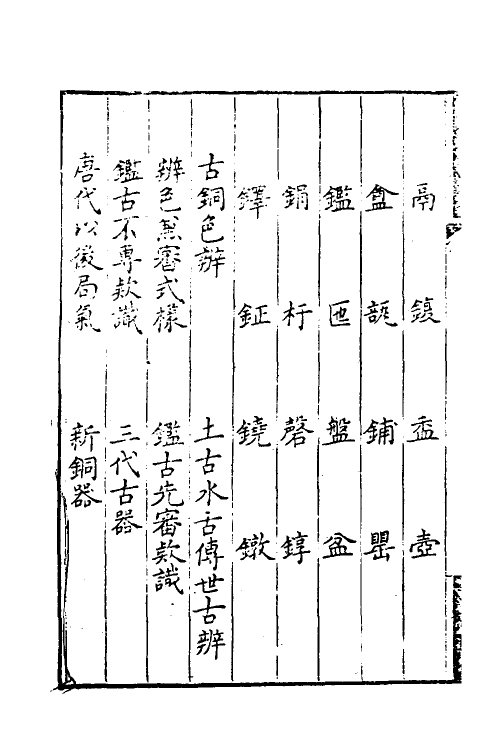 鬲 鍑 盉 壺
盦 瓿 鋪 罍
鑑 匜 盤 盆
鋗 杅 磬 錞
鐸 鉦 鐃 鐓
古銅色辨 土古水古傳世古辨
辨色兼審式樣 鑑古先審欵識
鑑古不專欵識 三代古器
唐代以後局氣 新銅器